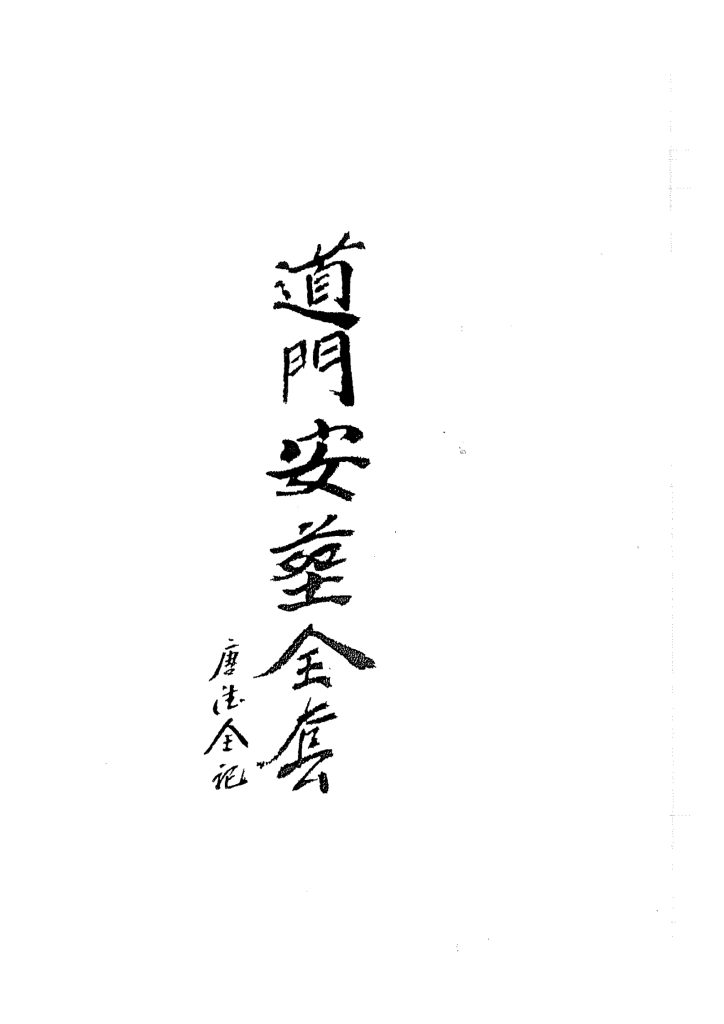 道門安墓全套
唐法全記